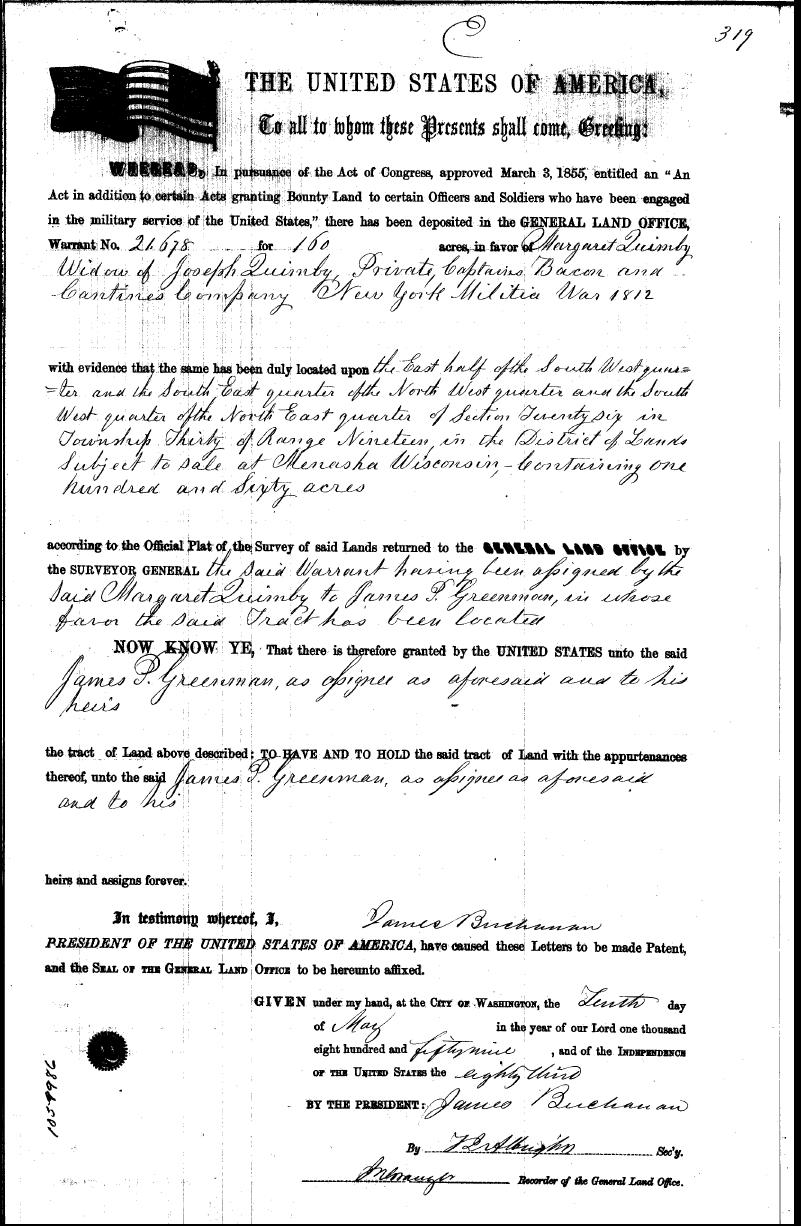 C
319
THE UNITED STATES OF AMERICA,
To all to whom these Presents shall come, Greeting:
WHEREAS, In pursuance of the Act of Congress, approved March 3, 1855, entitled an "An
Act in addition to certain Acts granting Bounty Land to certain Officers and Soldiers who have been engaged
in the military service of the United States," there has been deposited in the GENERAL LAND OFFICE,
Warrant No. 21.678 for 160 acres, in favor of Margaret Quimby
Widow of Joseph Quimby, Private, Captains Bacon and
Cantines Company New York Militia War 1812
with evidence that the same has been duly located upon the East half of the South West quar=
=ter and the South East quarter of the North West quarter and the South
West quarter of the North East quarter of Section Twenty six in
Township Thirty of Range Nineteen, in the District of Lands
Subject to sale at Menasha Wisconsin, - Containing one
hundred and Sixty acres
according to the Official Plat of the Survey of said Lands returned to the GENERAL LAND OFFICE by
the SURVEYOR GENERAL the said Warrant having been assigned by the
said Margaret Quimby to James P. Greenman, in whose
favor the said Tract has been located
NOW KNOW YE, That there is therefore granted by the UNITED STATES unto the said
James P. Greenman, as assignee as aforesaid and to his
heirs
the tract of Land above described: TO HAVE AND TO HOLD the said tract of Land with the appurtenances
thereof, unto the said James P. Greenman, as assignee as aforesaid
and to his
heirs and assigns forever.
In testimony whereof, I, James Buchanan
PRESIDENT OF THE UNITED STATES OF AMERICA, have caused these Letters to be made Patent,
and the SEAL OF THE GENERAL LAND OFFICE to be hereunto affixed.
GIVEN under my hand, at the CITY OF WASHINGTON, the Tenth day
of May in the year of our Lord one thousand
eight hundred and fifty nine, and of the INDEPENDENCE
OF THE UNITED STATES the eighty third
BY THE PRESIDENT: James Buchanan
By Sec'y.
Recorder of the General Land Office.